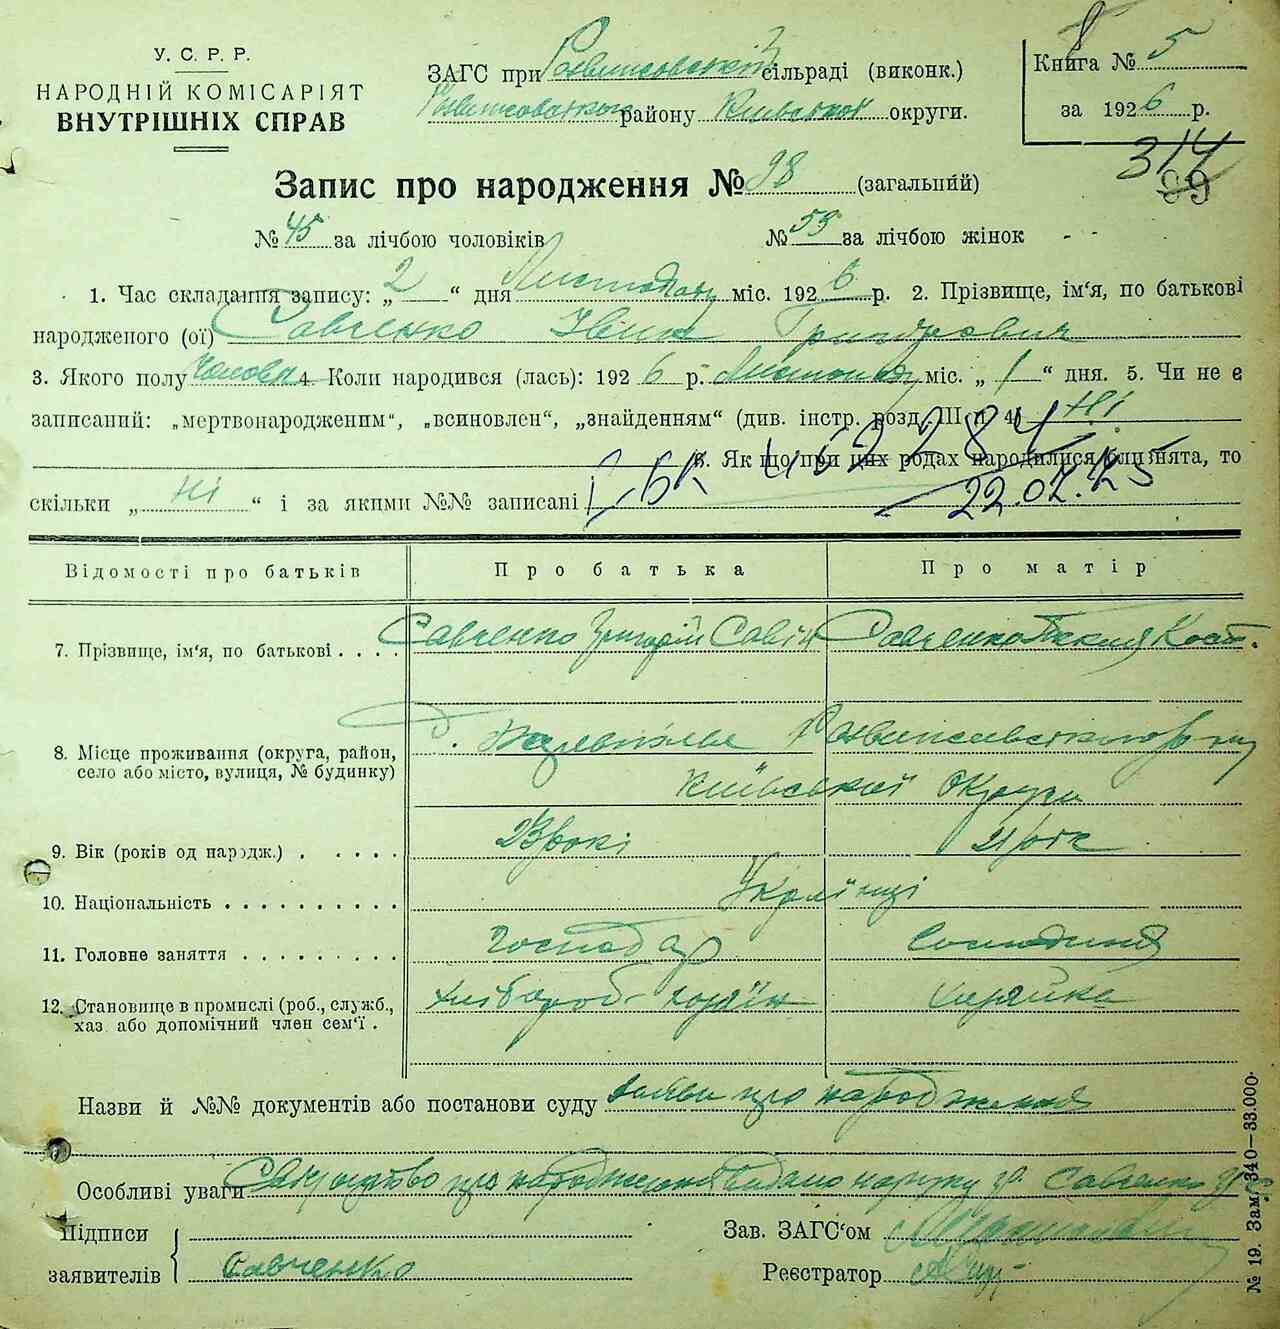 У. С. Р. Р.
НАРОДНІЙ КОМІСАРІЯТ
ВНУТРІШНІХ СПРАВ
ЗАГС при сільраді (виконк.)
району округи.
Книга № 5
за 1926 р.
314
99
Запис про народження № 98 (загальний)
№ 45 за лічбою чоловіків № 53 за лічбою жінок
1. Час складання запису: „2“ дня Листопаду міс. 1926 р. 2. Прізвище, ім‘я, по батькові
народженого (ої) Савченко Івин Григорович
3. Якого полу Чолов. 4. Коли народився (лась): 1926 р. Листопаду міс. „1“ дня. 5. Чи не є
записаний: „мертвонародженим“, „всиновлен“, „знайденням“ (див. інстр. розд. III п 4) Ні
6. Як що при цих родах народилися близнята, то
22.02.
скільки „Ні“ і за якими №№ записані
Відомості про батьків Про батька Про матір
7. Прізвище, ім‘я, по батькові . . . . Савченко Григорій Савін Савченко Кост.
8. Місце проживання (округа, район,
село або місто, вулиця, № будинку)
Київської Округи
9. Вік (років од народж.) . . . . . . 23 рокі 21 рік
10. Національність . . . . . . . . . . Українці
11. Головне заняття . . . . . . . . . Господар Господиня
12. Становище в промислі (роб., служб.,
хаз або допомічний член сем‘ї . Хлібороб-хазяїн Хазяйка
Назви й №№ документів або постанови суду заяви про народження
Особливі уваги про народження видано на руки гр. Савченко
Підписи
заявителів Савченко
Зав. ЗАГС‘ом
Реєстратор
№ 19. Зам. 340—33.000.